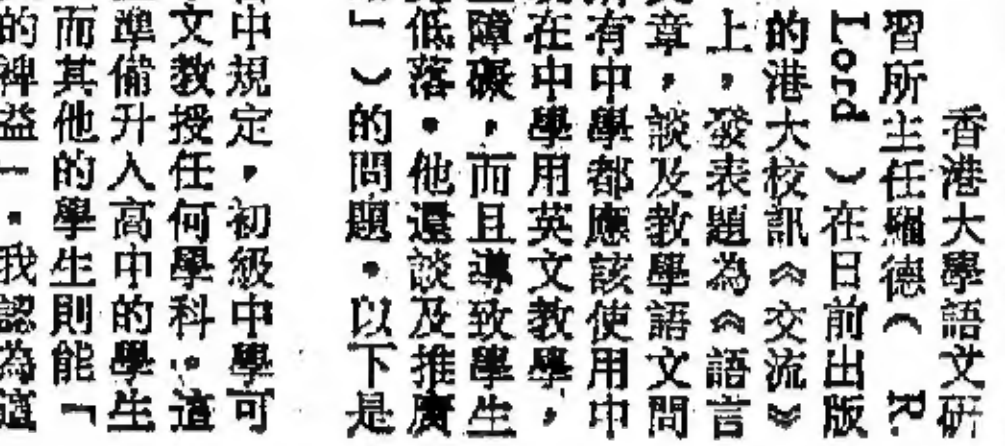 香港大學語文研
習所主任羅德（R.
Lord）在日前出版
的港大校訊《交流》
上，發表題為《語言
章，談及教學語文問
有中學都應該使用中
在中學用英文教學，
障礙，而且導致學生
低落。他還談及推廣
」）的問題。以下是
中規定，初級中學可
文教授任何學科。這
準備升入高中的學生
而其他的學生則能「
的裨益」。我認為這